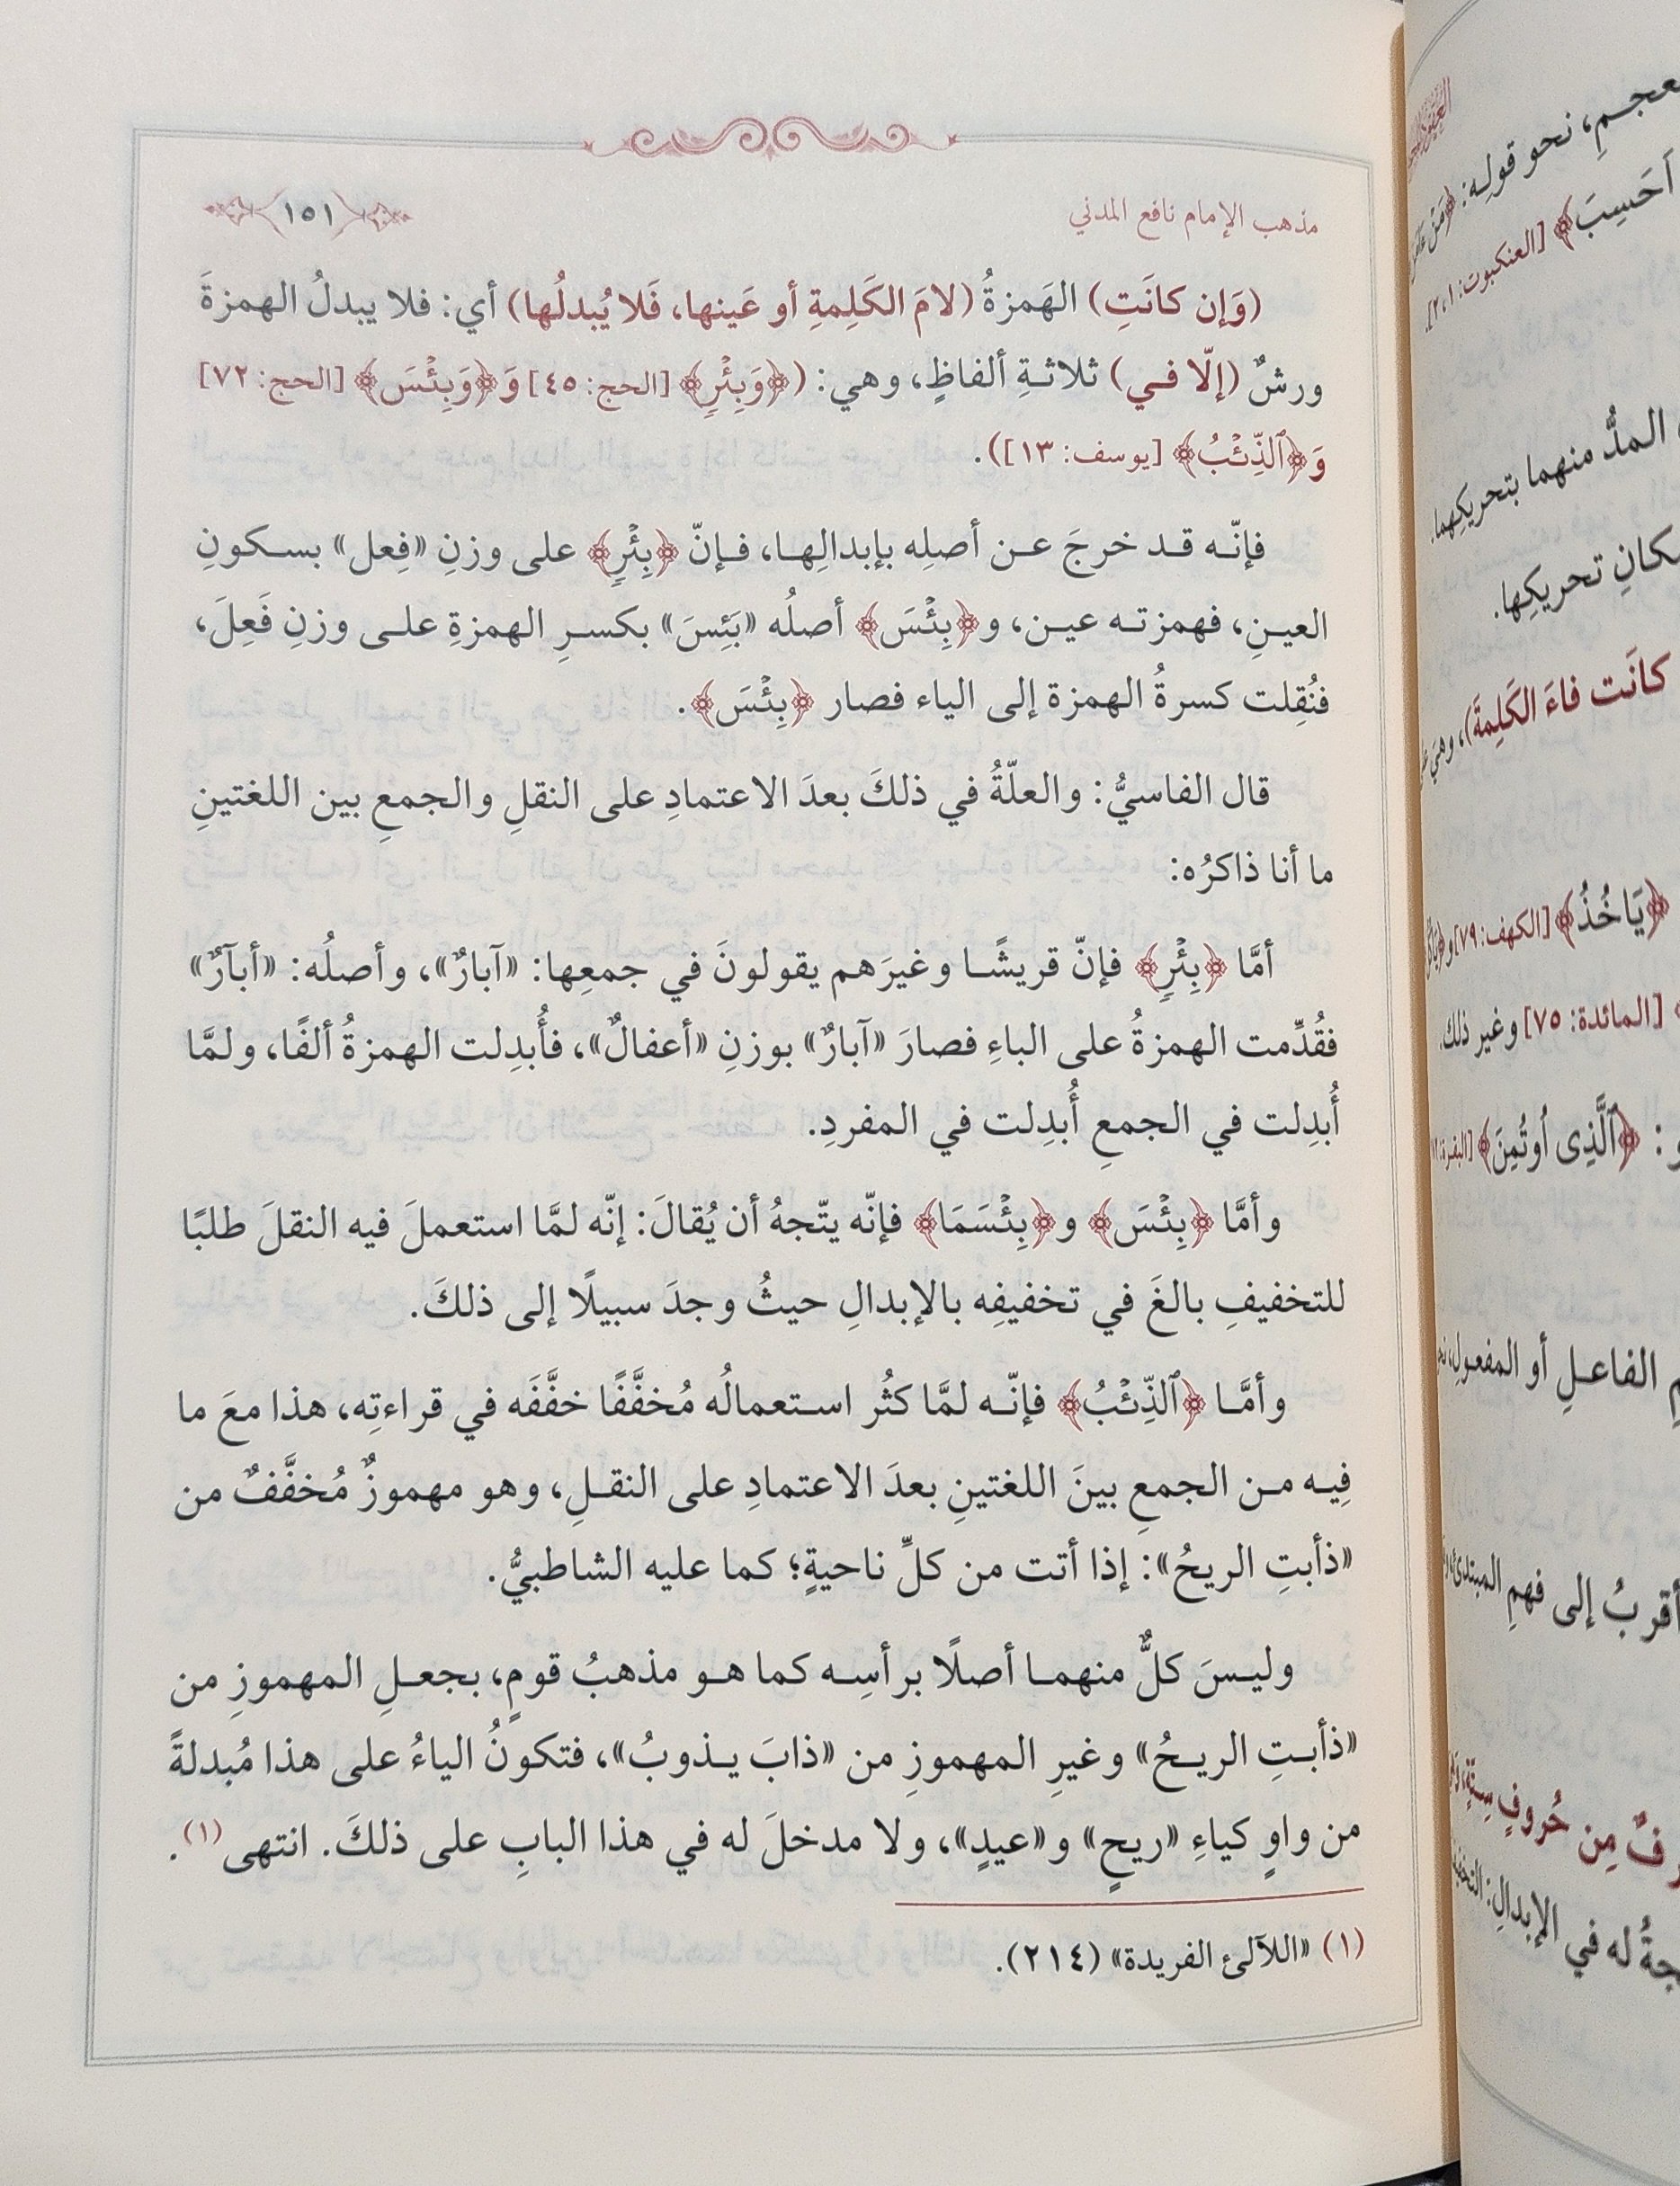 مذهب الإمام نافع المدني
١٥١
(وَإن كانَتِ) الهَمزةُ (لامَ الكَلِمةِ أو عَينها، فَلا يُبدلُها) أي: فلا يبدلُ الهمزةَ
ورشٌ (إلّا في) ثلاثةِ ألفاظٍ، وهي: (﴿وَبِئْرٍ﴾ [الحج: ٤٥] وَ﴿وَبِئْسَ﴾ [الحج: ٧٢]
وَ﴿ٱلذِّئْبُ﴾ [يوسف: ١٣]).
فإنّه قد خرجَ عن أصلِه بإبدالِها، فإنّ ﴿بِئْرٍ﴾ على وزنِ «فِعل» بسكونِ
العينِ، فهمزته عين، و﴿بِئْسَ﴾ أصلُه «بَئِسَ» بكسرِ الهمزةِ على وزنِ فَعِلَ،
فنُقِلت كسرةُ الهمزة إلى الياء فصار ﴿بِئْسَ﴾.
قال الفاسيُّ: والعلّةُ في ذلكَ بعدَ الاعتمادِ على النقلِ والجمعِ بين اللغتينِ
ما أنا ذاكرُه:
أمَّا ﴿بِئْرٍ﴾ فإنّ قريشًا وغيرَهم يقولونَ في جمعِها: «آبارٌ»، وأصلُه: «أبآرٌ»
فقُدِّمت الهمزةُ على الباءِ فصارَ «آبارٌ» بوزنِ «أعفالٌ»، فأُبدِلت الهمزةُ ألفًا، ولمَّا
أُبدِلت في الجمعِ أُبدِلت في المفردِ.
وأمَّا ﴿بِئْسَ﴾ و﴿بِئْسَمَا﴾ فإنّه يتّجهُ أن يُقالَ: إنّه لمَّا استعملَ فيه النقلَ طلبًا
للتخفيفِ بالغَ في تخفيفِه بالإبدالِ حيثُ وجدَ سبيلًا إلى ذلكَ.
وأمَّا ﴿ٱلذِّئْبُ﴾ فإنّه لمَّا كثُر استعمالُه مُخفَّفًا خفَّفَه في قراءتِه، هذا معَ ما
فِيه من الجمعِ بينَ اللغتينِ بعدَ الاعتمادِ على النقلِ، وهو مهموزٌ مُخفَّفٌ من
«ذأبتِ الريحُ»: إذا أتت من كلِّ ناحيةٍ؛ كما عليه الشاطبيُّ.
وليسَ كلٌّ منهما أصلًا برأسِه كما هو مذهبُ قومٍ، بجعلِ المهموزِ من
«ذأبتِ الريحُ» وغيرِ المهموزِ من «ذابَ يذوبُ»، فتكونُ الياءُ على هذا مُبدلةً
من واوٍ كياءِ «ريحٍ» و«عيدٍ»، ولا مدخلَ له في هذا البابِ على ذلكَ. انتهى (١).
(١) «اللآلئ الفريدة» (٢١٤).
نحو قولِه:
أَحَسِبَ﴾ [العنكبوت: ١،٢].
المدُّ منهما بتحريكِهما.
تحريكِها.
كانَت فاءَ الكَلِمةَ)،
﴿يَاخُذُ﴾ [الكهف: ٧٩]
[المائدة: ٧٥] وغير ذلك.
﴿ٱلَّذِى ٱوتُمِنَ﴾
الفاعلِ أو المفعولِ،
أقربُ إلى فهمِ المبتدئ
مِن حُروفِ سِتّةٍ
له في الإبدالِ: